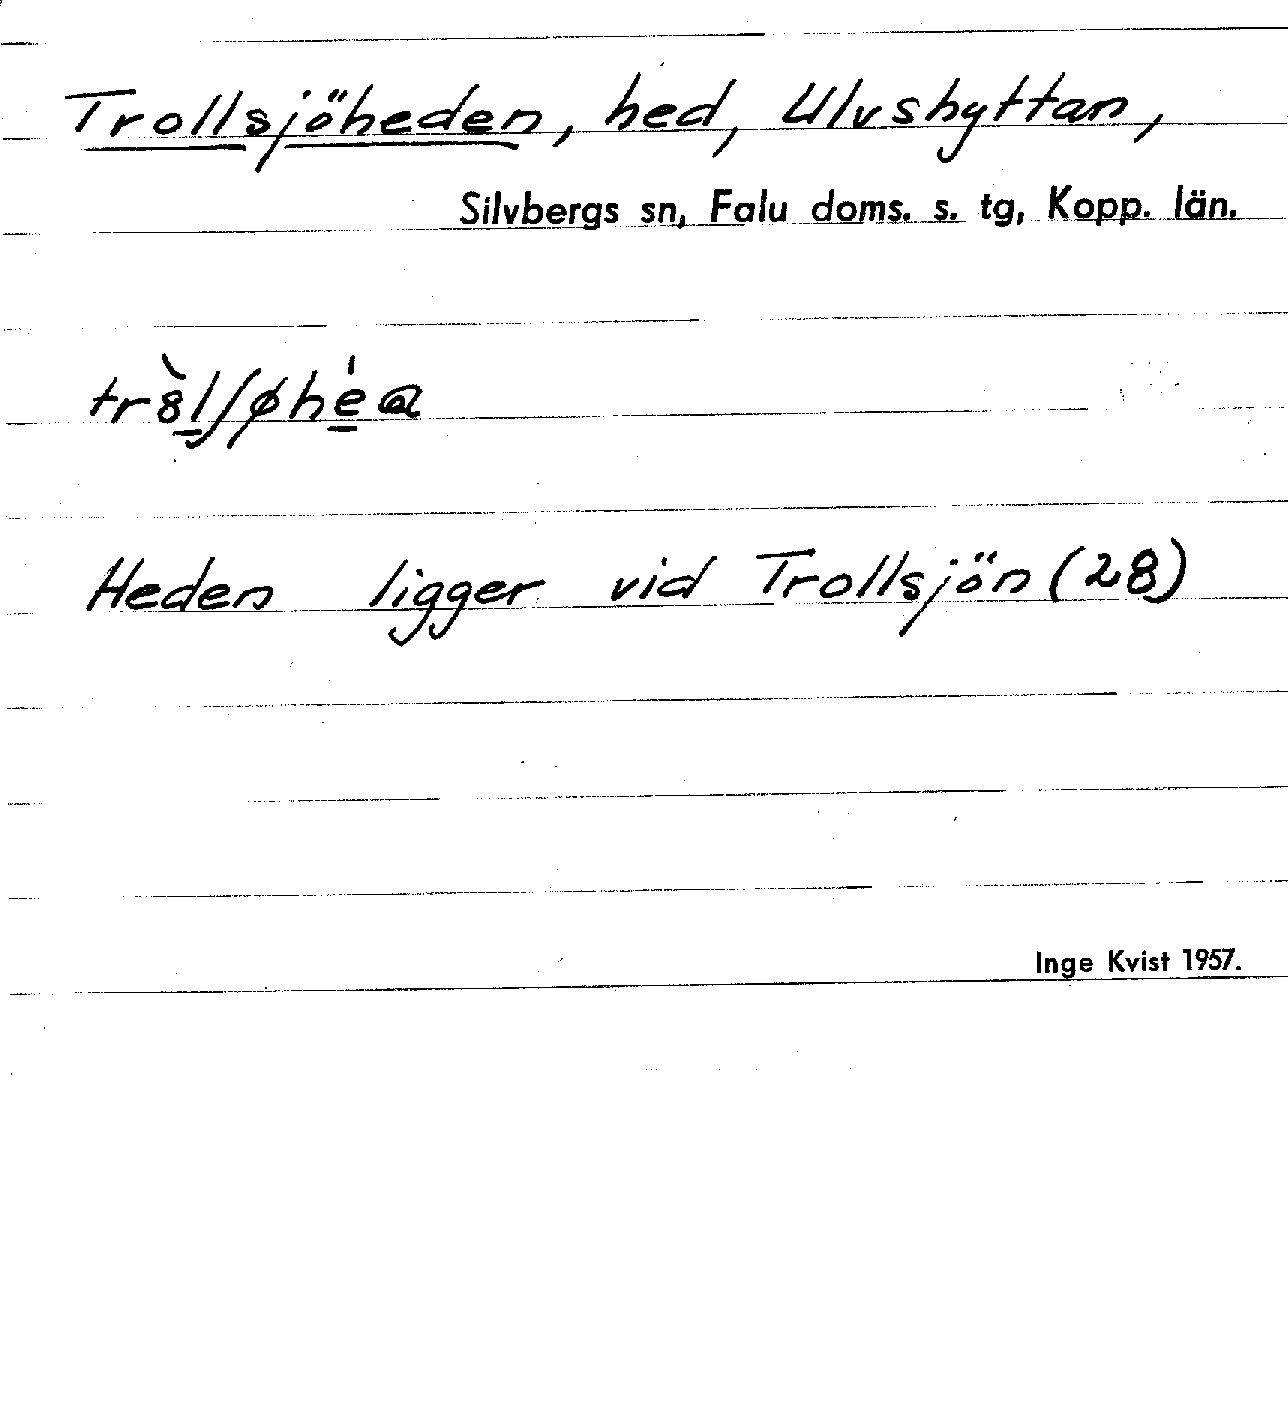 Trollsjöheden, hed, Ulvshyttan,
Silvbergs sn, Falu doms. s. tg, Kopp. län.
Heden ligger vid Trollsjön (28)
Inge Kvist 1957.